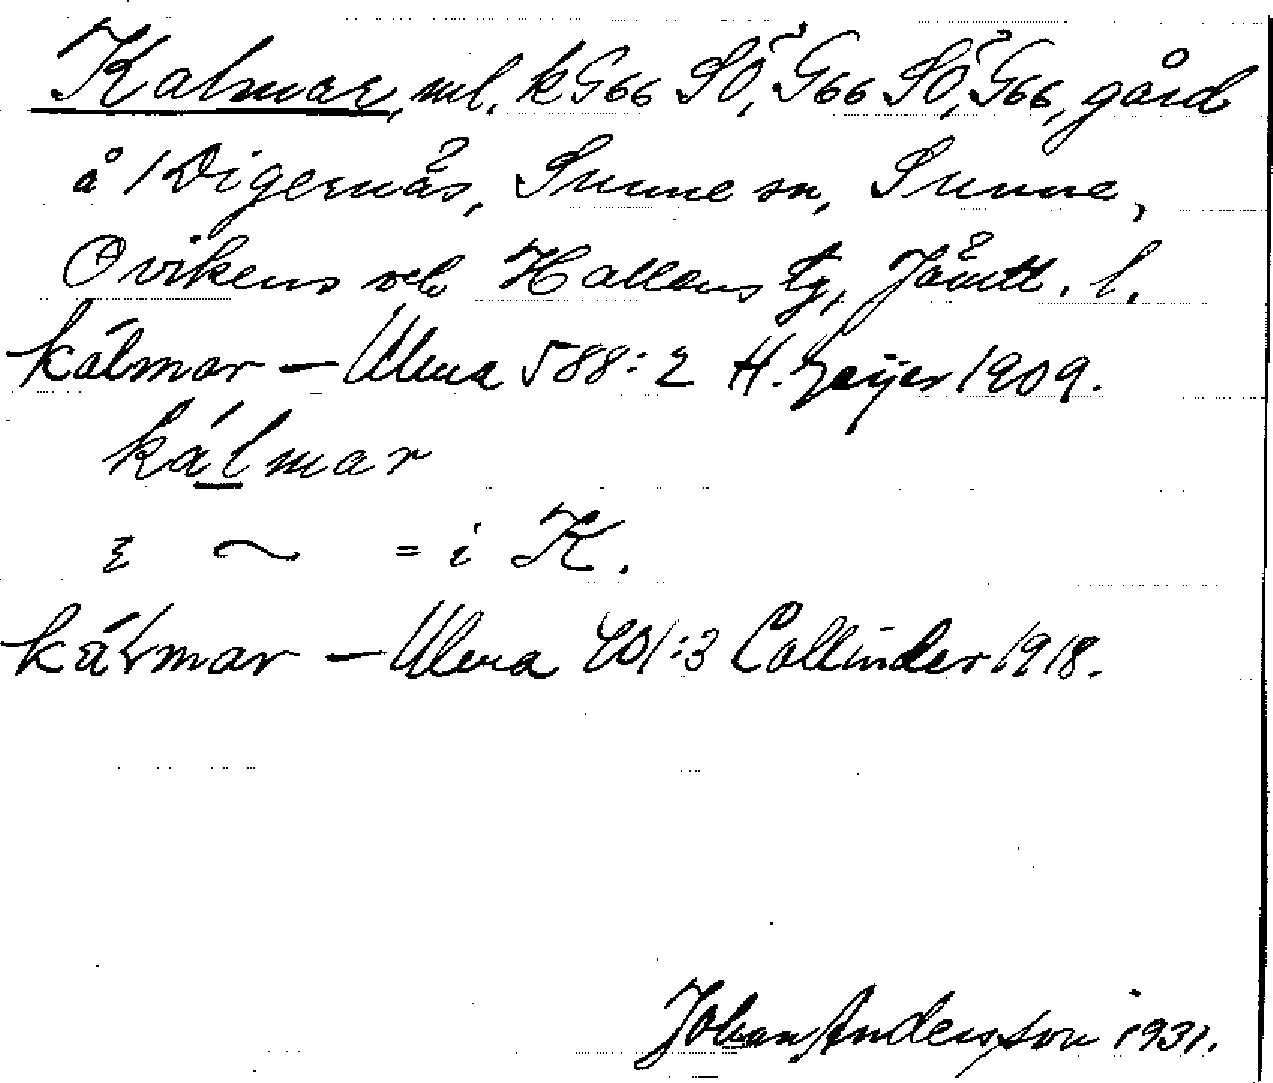 Kalmar, ml. k G66 SO, G66 SO, G66, gård
å /Digernäs, Sunne sn, Sunne,
Ovikens och Hallens tg, Jämtl. l.
kálmar – Ulma 588:2 H. Geijer 1909.
kálmar
ξ ~ = i K.
kálmar – Ulma 401:3 Collinder 1918.
Johan Andersson 1931.